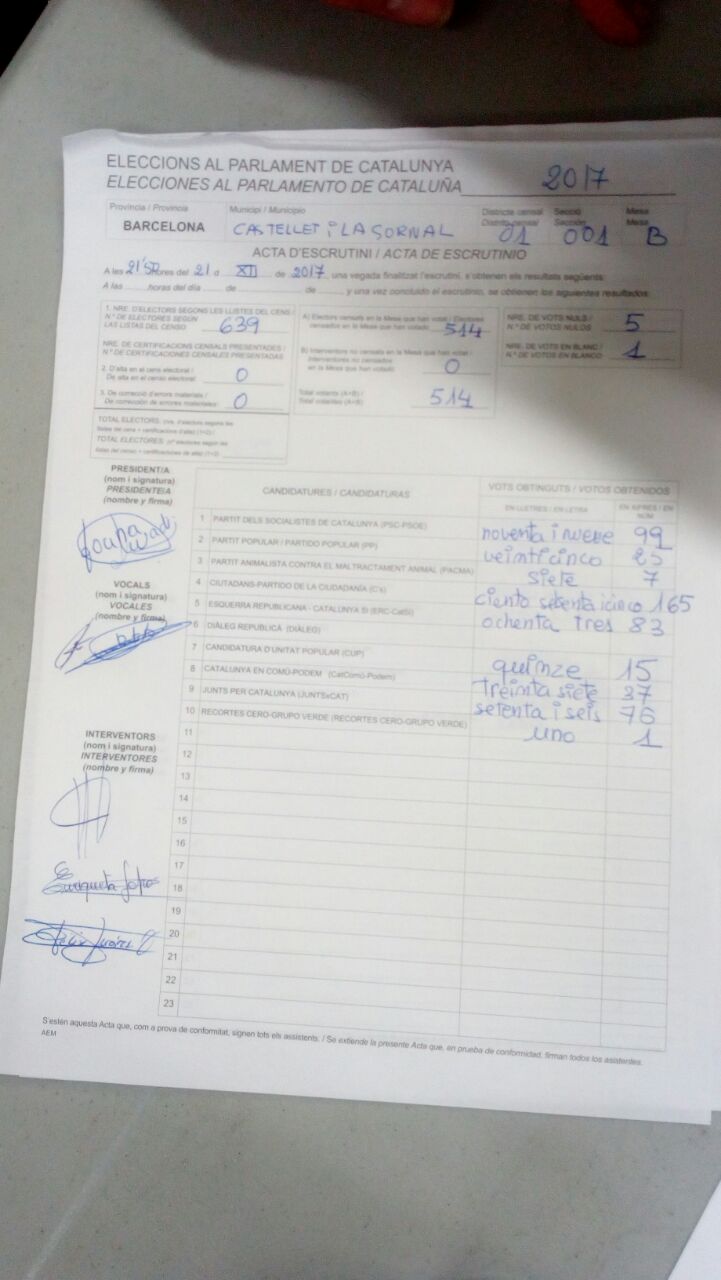 ELECCIONS AL PARLAMENT DE CATALUNYA
ELECCIONES AL PARLAMENTO DE CATALUÑA 2017
Província / Provincia Municipi / Municipio Districte censal Secció Mesa
Distrito censal Sección Mesa
BARCELONA CASTELLET i LA GORNAL 01 001 B
ACTA D'ESCRUTINI / ACTA DE ESCRUTINIO
A les 21'50 hores del 21 d XII de 2017, una vegada finalitzat l'escrutini, s'obtenen els resultats següents:
A las ......horas del día ..... de ............ de ......, y una vez concluido el escrutinio, se obtienen los siguientes resultados:
1. NRE. D'ELECTORS SEGONS LES LLISTES DEL CENS /
N.º DE ELECTORES SEGÚN
LAS LISTAS DEL CENSO 639
NRE. DE CERTIFICACIONS CENSALS PRESENTADES /
N.º CERTIFICACIONES CENSALES PRESENTADAS
2. D'alta en el cens electoral /
De alta en el censo electoral: 0
3. De correcció d'errors materials /
De corrección de errores materiales: 0
TOTAL ELECTORS:
TOTAL ELECTORES:
A) Electors censats en la Mesa que han votat / Electores
censados en la Mesa que han votado 514
B) Interventors no censats en la Mesa que han votat /
Interventores no censados
en la Mesa que han votado 0
Total votants (A+B) /
Total votantes (A+B) 514
NRE. DE VOTS NULS /
N.º DE VOTOS NULOS 5
NRE. DE VOTS EN BLANC /
N.º DE VOTOS EN BLANCO 1
PRESIDENT/A
(nom i signatura)
PRESIDENTE/A
(nombre y firma)
VOCALS
(nom i signatura)
VOCALES
(nombre y firma)
INTERVENTORS
(nom i signatura)
INTERVENTORES
(nombre y firma)
CANDIDATURES / CANDIDATURAS VOTS OBTINGUTS / VOTOS OBTENIDOS
EN LLETRES / EN LETRA EN XIFRES / EN NÚM.
1 PARTIT DELS SOCIALISTES DE CATALUNYA (PSC-PSOE) noventa i nueve 99
2 PARTIT POPULAR / PARTIDO POPULAR (PP) veinticinco 25
3 PARTIT ANIMALISTA CONTRA EL MALTRACTAMENT ANIMAL (PACMA) siete 7
4 CIUTADANS-PARTIDO DE LA CIUDADANÍA (C's) ciento sesenta i cinco 165
5 ESQUERRA REPUBLICANA - CATALUNYA SÍ (ERC-CatSí) ochenta tres 83
6 DIÀLEG REPUBLICÀ (DIÀLEG)
7 CANDIDATURA D'UNITAT POPULAR (CUP) quinze 15
8 CATALUNYA EN COMÚ-PODEM (CatComú-Podem) treinta siete 37
9 JUNTS PER CATALUNYA (JUNTSxCAT) setenta i seis 76
10 RECORTES CERO-GRUPO VERDE (RECORTES CERO-GRUPO VERDE) uno 1
11
12
13
14
15
16
17
18
19
20
21
22
23
S'estén aquesta Acta que, com a prova de conformitat, signen tots els assistents. / Se extiende la presente Acta que, en prueba de conformidad, firman todos los asistentes.
AEM